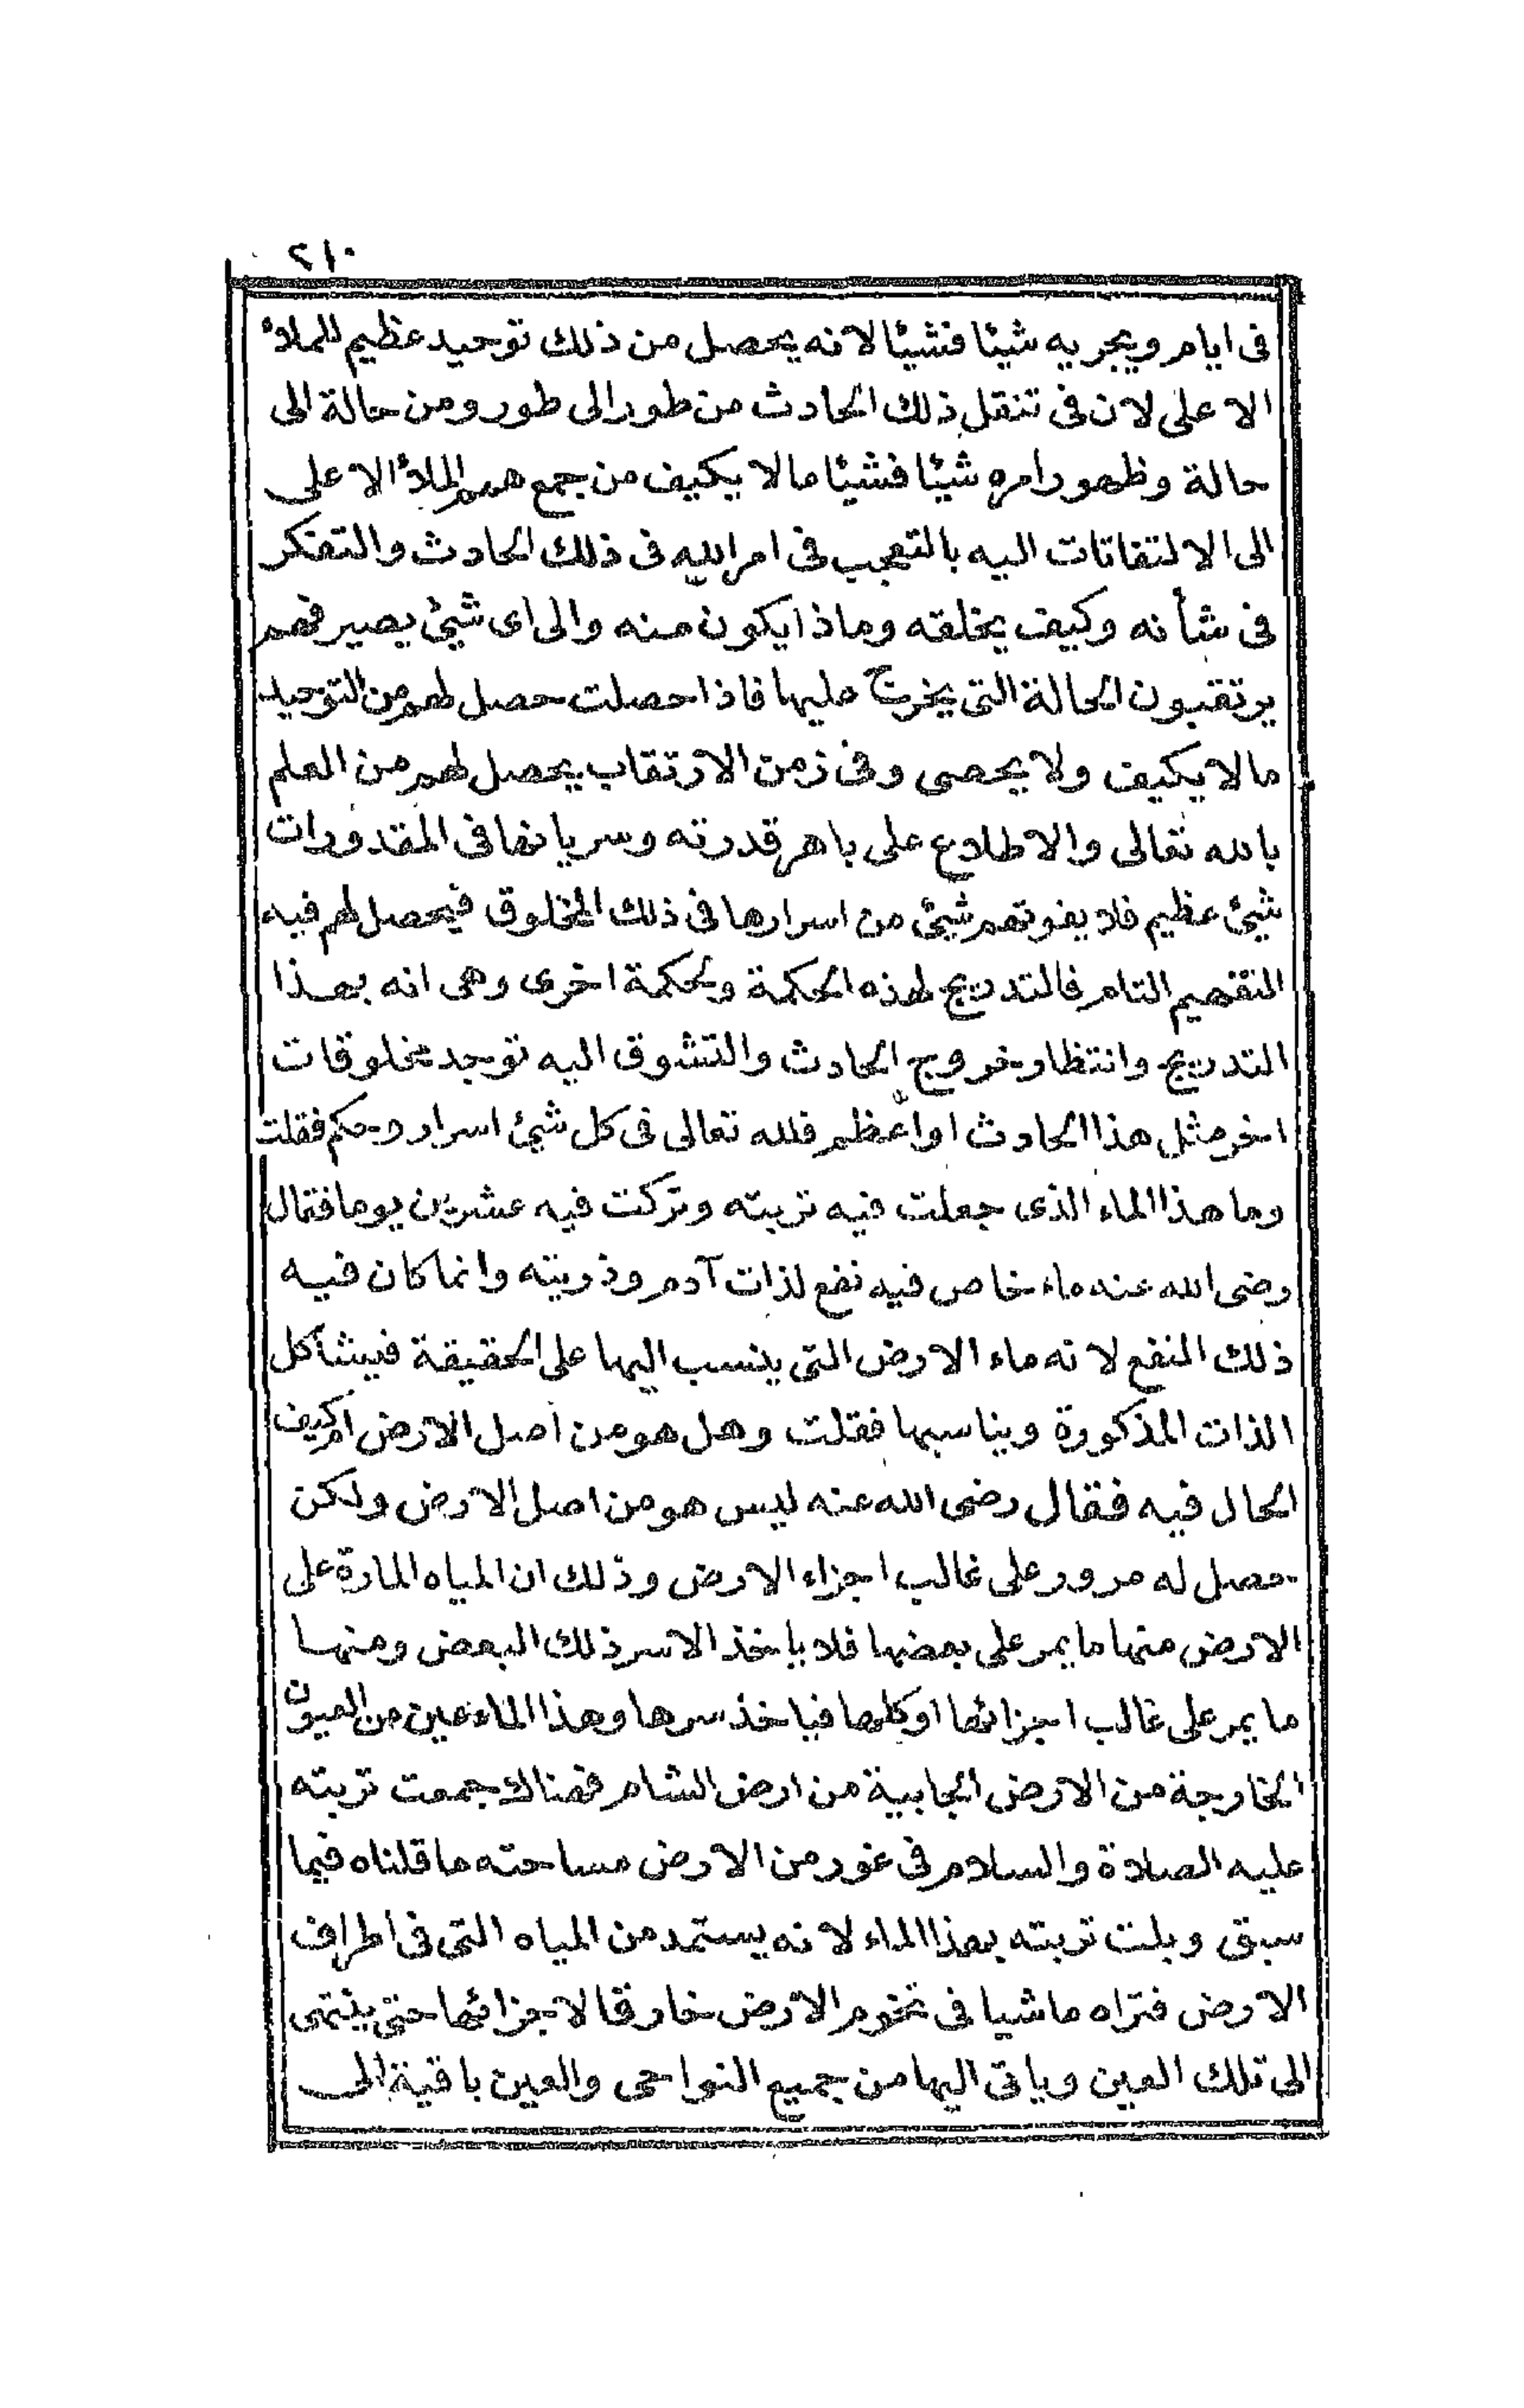 ٢١٠
فى ايام ويجريه شيئا فشيئا لانه يحصل من ذلك توحيد عظيم للملأ
الاعلى لان فى تنقل ذلك الحادث من طور الى طور ومن حالة الى
حالة وظهور امره شيئا فشيئا ما لا يكيف من جمع همم الملأ الاعلى
الى الالتفاتات اليه بالتعجب فى امر الله فى ذلك الحادث والتفكر
فى شأنه وكيف يخلقه وماذا يكون منه والى اى شيئ يصير فهم
يرتقبون الحالة التى يخرج عليها فاذا حصلت حصل لهم من التوحيد
ما لا يكيف ولا يحصى وفى زمن الارتقاب يحصل لهم من العلم
بالله تعالى والاطلاع على باهر قدرته وسريانها فى المقدورات
شيئ عظيم فلا يفوتهم شيئ من اسرارها فى ذلك المخلوق فيحصل لهم فيه
التفهيم التام فالتدريج لهذه الحكمة ولحكمة اخرى وهى انه بهذا
التدريج وانتظار خروج الحادث والتشوق اليه توجد مخلوقات
اخر مثل هذا الحادث او اعظم فلله تعالى فى كل شيئ اسرار وحكم فقلت
وما هذا الماء الذى جعلت فيه تربته وتركت فيه عشرين يوما فقال
رضى الله عنه ماء خاص فيه نفع لذات آدم وذريته وانما كان فيه
ذلك النفع لانه ماء الارض التى ينسب اليها على الحقيقة فيشاكل
الذات المذكورة ويناسبها فقلت وهل هو من اصل الارض ام كيف
الحال فيه فقال رضى الله عنه ليس هو من اصل الارض ولكن
حصل له مرور على غالب اجزاء الارض وذلك ان المياه المارة على
الارض منها ما يمر على بعضها فلا ياخذ الاسر ذلك البعض ومنها
ما يمر على غالب اجزائها او كلها فياخذ سرها وهذا الماء عين من العيون
الخارجة من الارض الجابية من ارض الشام فهناك جمعت تربته
عليه الصلاة والسلام فى غور من الارض مساحته ما قلناه فيما
سبق وبلت تربته بهذا الماء لانه يستمد من المياه التى فى اطراف
الارض فتراه ماشيا فى تخوم الارض خارقا لاجزائها حتى ينتهى
الى تلك العين وياتى اليها من جميع النواحى والعين باقية الى